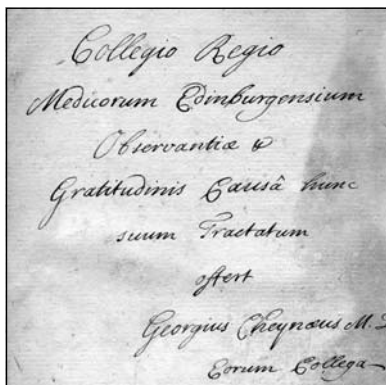 Collegio Regio
Medicorum Edinburgensium
Observantiæ &
Gratitudinis Causâ hunc
suum Tractatum
offert
Georgius Cheynæus M.
Eorum Collega